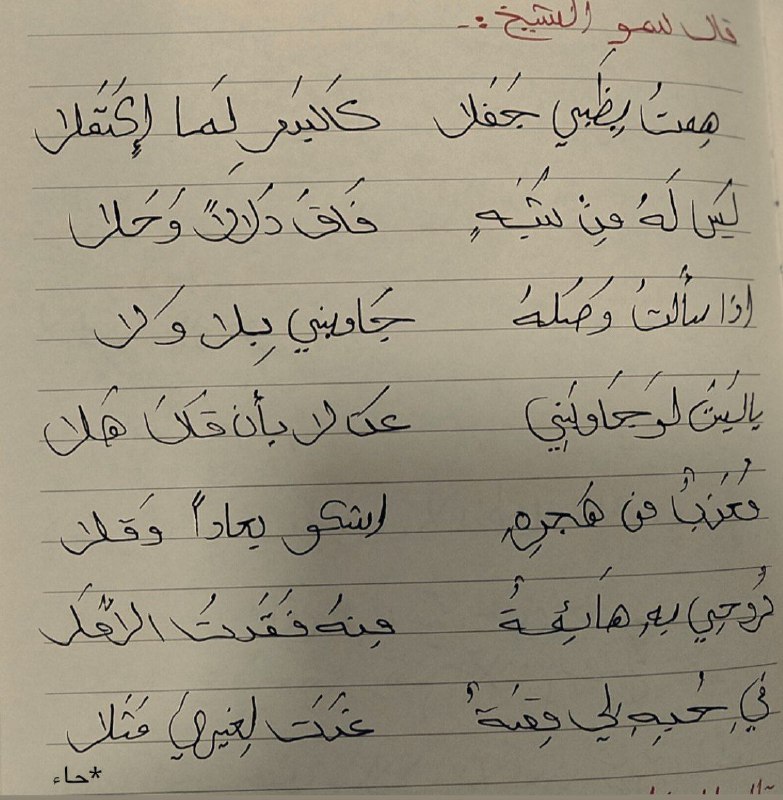 قال سمو الشيخ :-
هِمتُ بِظَبيٍ جَفَلا كَالبَدرِ لَمَا إِكتَمَلا
لَيسَ لَهُ مِنْ شَبَهٍ فَاقَ دَلالاً وَحَلا
إذا سألتُ وَصَلهُ جَاوبني بِلا وَلا
ياليتَ لَو جَاوَبَنِي عن لا بأن قالَ هَلا
مُعَذبٌ من هَجرِهِ اشكو بعاداً وَقلا
رُوحِي بهِ هَائِمةٌ مِنهُ فَقَدتُ الأمَلَ
في حُبهِ لي قِصَةٌ غَدَت لِغيري مَثَلا
*حاء